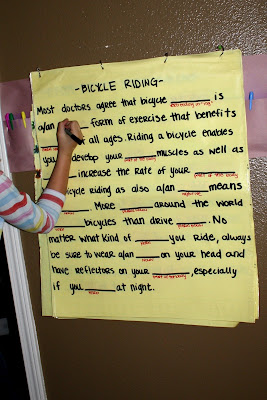 -BICYCLE RIDING-
Most doctors agree that bicycle ______ is
a/an ______ form of exercise that benefits
all ages. Riding a bicycle enables
you develop your ______ muscles as well as
part of the body
increase the rate of your ______
part of the body
riding as also a/an ______ means
______. More ______ around the world
______ bicycles than drive ______. No
matter what kind of ______ you ride, always
noun
be sure to wear a/an ______ on your head and
noun
have reflectors on your ______, especially
part of the body
if you ______ at night.